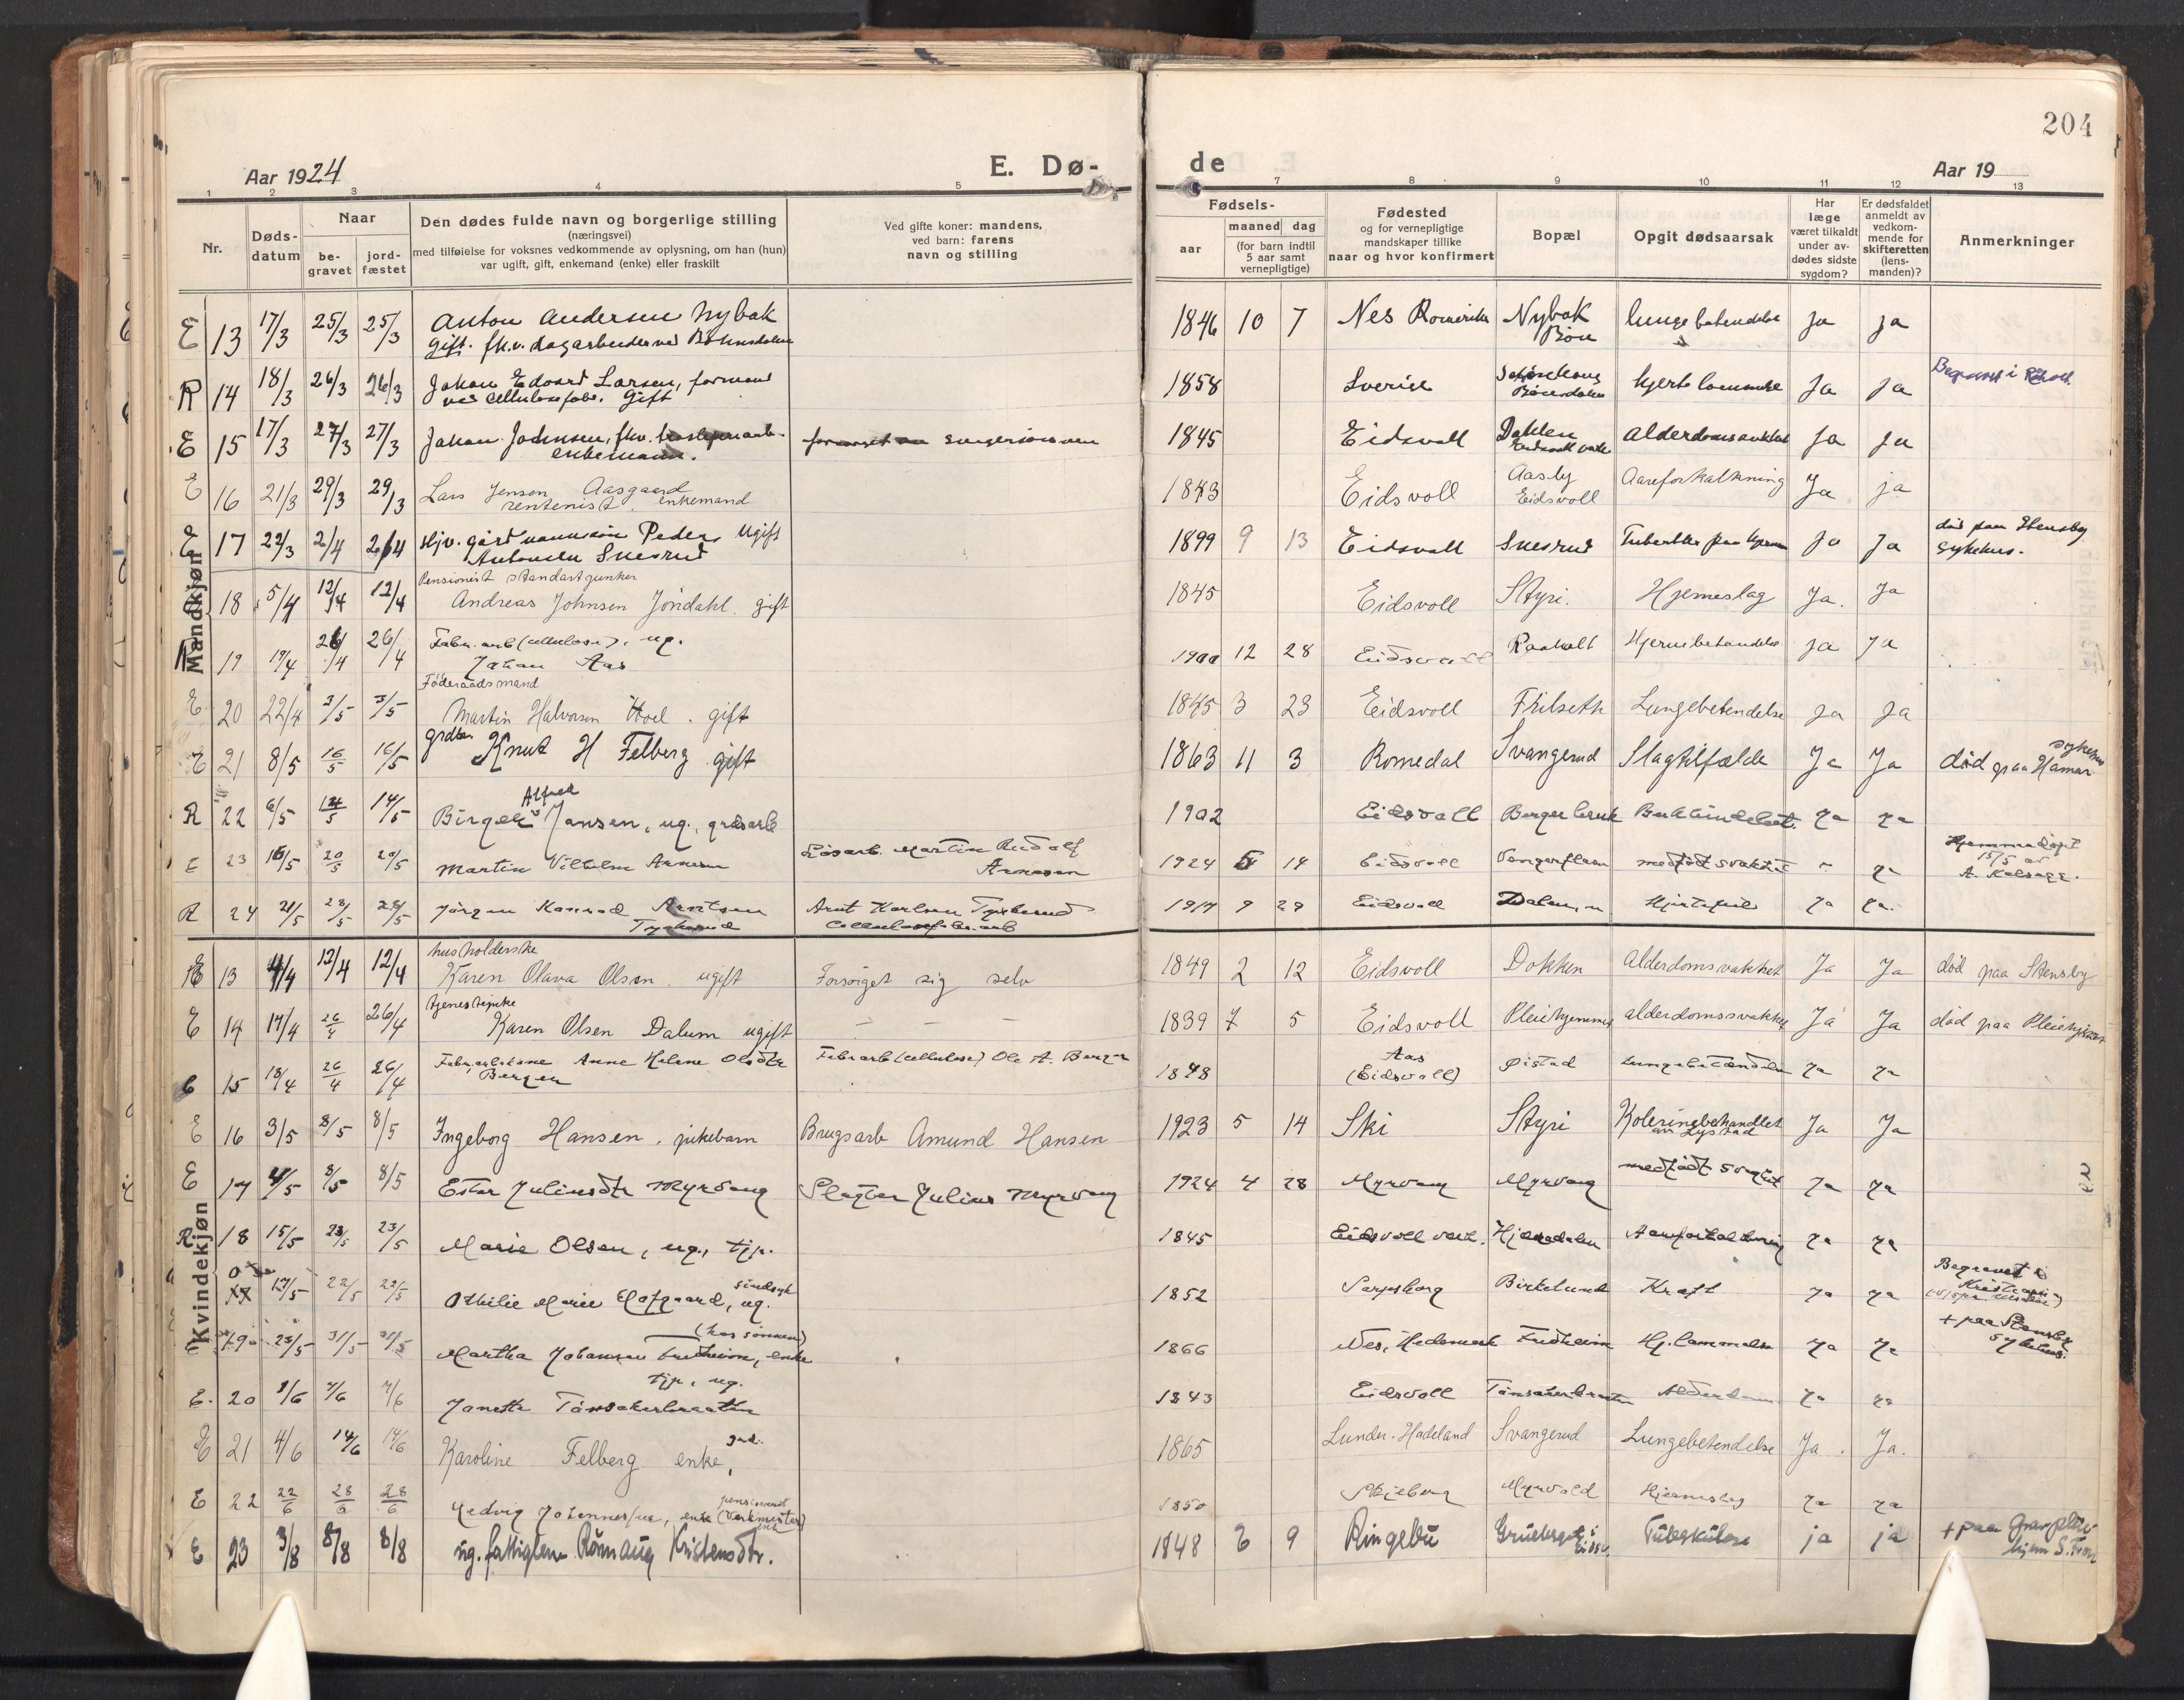 204
Aar 1924
E. Dø-
de
Aar 19
1 2 3 4 5 7 8 9 10 11 12 13
Nr.
Døds-
datum
Naar
be-
gravet
jord-
fæstet
Den dødes fulde navn og borgerlige stilling
(næringsvei)
med tilføielse for voksnes vedkommende av oplysning, om han (hun)
var ugift, gift, enkemand (enke) eller fraskilt
Ved gifte koner: mandens,
ved barn: farens
navn og stilling
Fødsels-
aar
maaned dag
(for barn indtil
5 aar samt
vernepligtige)
Fødested
og for vernepligtige
mandskaper tillike
naar og hvor konfirmert
Bopæl
Opgit dødsaarsak
Har
læge
været tilkaldt
under av-
dødes sidste
sygdom?
Er dødsfaldet
anmeldt av
vedkom-
mende for
skifteretten
(lens-
manden)?
Anmerkninger
Mandkjøn
E 13 17/3 25/3 25/3 Anton Andersen Nybak 1846 10 7 Nes Romerike Nybak lungebetendelse ja ja
gift. fhv. dagarbeider ved Bøhnsdalen Bøn
R 14 18/3 26/3 26/3 Johan Edvard Larsen, formand 1858 Sverige ja ja Begravet i Råholt
ved cellulosefabr. Gift
E 15 17/3 27/3 27/3 Johan Johnsen, fhv. 1845 Eidsvoll Dokken Alderdomssvakhet ja ja
enkemann. Eidsvoll verk
E 16 21/3 29/3 29/3 Lars Jensen Aasgaard 1843 Eidsvoll Aasby Aareforkalkning Ja ja
rentenist, enkemand Eidsvoll
E 17 22/3 2/4 2/4 Hjv. gårdmannssøn Peder ugift 1899 9 13 Eidsvoll Snesrud ja ja død paa Stensby
Antonsen Snesrud sykehus.
Pensionist standartjunker
18 5/4 12/4 12/4 Andreas Johnsen Jøndahl. gift 1845 Eidsvoll Styri. Hjerneslag Ja. Ja
Fabr. arb (cellulose), ug.
R 19 19/4 26/4 26/4 Johan Aas 1900 12 28 Eidsvoll Raaholt Hjernebetendelse ja ja
Føderaadsmand
E 20 22/4 3/5 3/5 Martin Halvorsen Hoel. gift 1845 3 23 Eidsvoll Frilseth Lungebetendelse Ja Ja
grdbr.
E 21 8/5 16/5 16/5 Knut H Felberg gift 1863 11 3 Romedal Svangerud Slagtilfælde Ja Ja død paa Hamar
sykehus
Alfred
R 22 6/5 14/5 14/5 Birger Jansen, ug., grdsarb 1902 Eidsvoll Berger bruk ja ja
E 23 16/5 20/5 20/5 Martin Vilhelm Arnesen Løsarb. Martin Rudolf 1924 5 14 Eidsvoll medfødt svakhet ja Hjemmedøpt
Arnesen 15/5 av
R 24 21/5 28/5 28/5 Jørgen Konrad Arntsen Arnt Karlsen 1917 9 29 Eidsvoll Dalen Hjertefeil ja ja.
Cellulosefabr. arb
Kvindekjøn
husholderske
E 13 4/4 12/4 12/4 Karen Olava Olsen. ugift Forsørget sig selv 1849 2 12 Eidsvoll Dokken alderdomsvakhet Ja Ja død paa Stensby
tjenestepike
E 14 17/4 26/4 26/4 Karen Olsen Dalum ugift — — — 1839 7 5 Eidsvoll Pleiehjemmet alderdomssvakhet Ja Ja død paa Pleiehjemmet
15 18/4 26/4 26/4 Fabr.arb.kone Anne Helene Olsdtr Fabr.arb (cellulose) Ole A. Berger 1848 Aas Øistad Lungebetændelse ja ja
Berger (Eidsvoll)
E 16 3/5 8/5 8/5 Ingeborg Hansen, pikebarn Brugsarb Amund Hansen 1923 5 14 Ski Styri Kolerinebehandlet Ja Ja
av Lystad
E 17 4/5 8/5 8/5 Ester Juliusdtr Myrvang Slagter Julius Myrvang 1924 4 28 Myrvang Myrvang medfødt svakhet ja ja
R. 18 15/5 23/5 23/5 Marie Olsen, ug., tjp. 1845 Eidsvoll verk. Aareforkalkning ja ja
sindssyk
17/5 22/5 22/5 Othilie Marie Hofgaard, ug. 1852 Sarpsborg Birkelund Kræft ja ja Begravet i
Kristiania
(hos sønnen)
19 25/5 31/5 31/5 Martha Johansen Fredheim, enke 1866 Nes, Hedemark Fredheim Hj. lammelse ja ja + paa Stensby
sykehus.
tjp., ug.
E. 20 1/6 7/6 7/6 Janette Tønsakerbraaten 1843 Eidsvoll Tønsakerbraaten Alderdom ja ja
E 21 4/6 14/6 14/6 Karoline Felberg enke, grd. 1865 Lunder. Hadeland Svangerud Lungebetendelse Ja. Ja.
pensioneret
E 22 22/6 28/6 28/6 Hedvig Johannessen, enke (verkmester) 1850 Skjeberg Myrvold Hjerneslag ja ja
E 23 3/8 8/8 8/8 ug. fattiglem Rønnaug Kristensdtr. 1848 6 9 Ringebu i Tuberkulose ja ja + paa
Eidsv. hjem